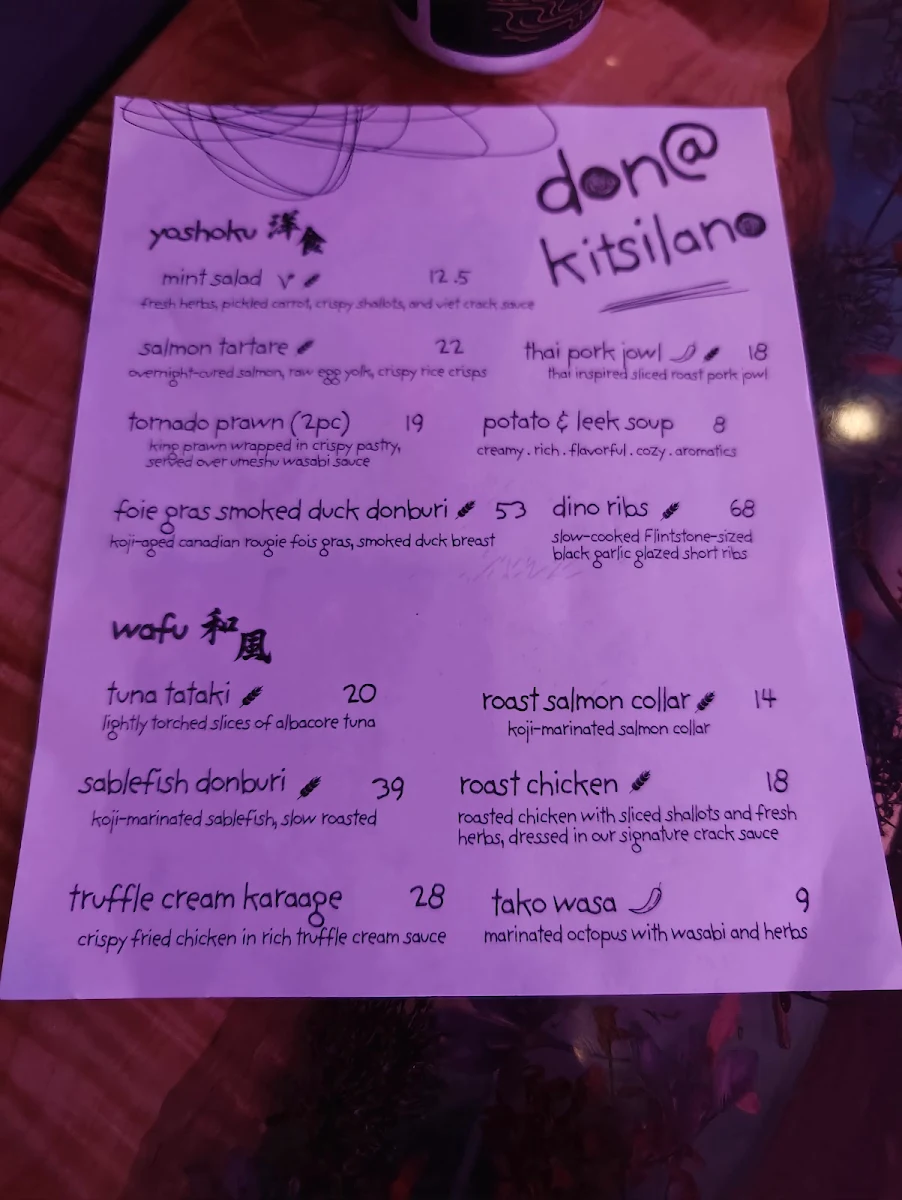 don@
kitsilano
yoshoku 洋食
mint salad v 12.5
fresh herbs, pickled carrot, crispy shallots, and viet crack sauce
salmon tartare 22
overnight-cured salmon, raw egg yolk, crispy rice crisps
thai pork jowl 18
thai inspired sliced roast pork jowl
tornado prawn (2pc) 19
king prawn wrapped in crispy pastry,
served over umeshu wasabi sauce
potato & leek soup 8
creamy . rich . flavorful . cozy . aromatics
foie gras smoked duck donburi 53
koji-aged canadian rougie fois gras, smoked duck breast
dino ribs 68
slow-cooked Flintstone-sized
black garlic glazed short ribs
wafu 和風
tuna tataki 20
lightly torched slices of albacore tuna
roast salmon collar 14
koji-marinated salmon collar
sablefish donburi 39
koji-marinated sablefish, slow roasted
roast chicken 18
roasted chicken with sliced shallots and fresh
herbs, dressed in our signature crack sauce
truffle cream karaage 28
crispy fried chicken in rich truffle cream sauce
tako wasa 9
marinated octopus with wasabi and herbs